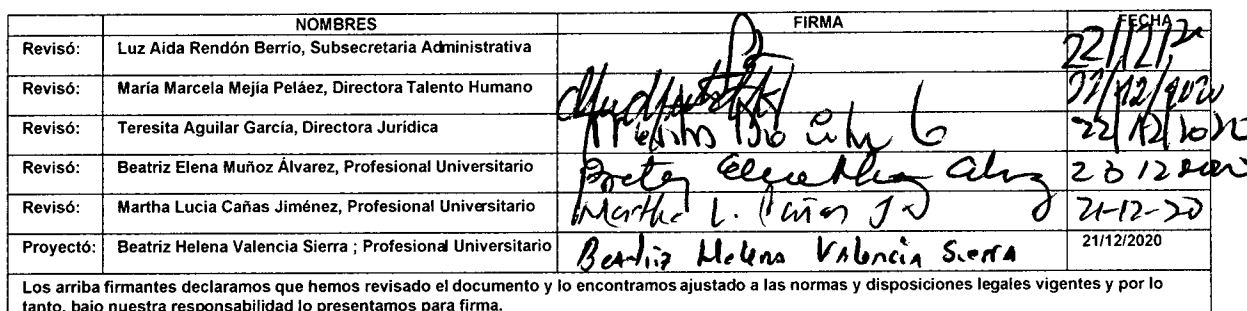 NOMBRES FIRMA FECHA
Revisó: Luz Aida Rendón Berrío, Subsecretaria Administrativa 22/12/20
Revisó: María Marcela Mejía Peláez, Directora Talento Humano 22/12/2020
Revisó: Teresita Aguilar García, Directora Jurídica 22/12/2020
Revisó: Beatriz Elena Muñoz Álvarez, Profesional Universitario 12 2020
Revisó: Martha Lucia Cañas Jiménez, Profesional Universitario Martha L. Cañas J 21-12-20
Proyectó: Beatriz Helena Valencia Sierra ; Profesional Universitario Beatriz Helena Valencia Sierra 21/12/2020
Los arriba firmantes declaramos que hemos revisado el documento y lo encontramos ajustado a las normas y disposiciones legales vigentes y por lo
tanto, bajo nuestra responsabilidad lo presentamos para firma.